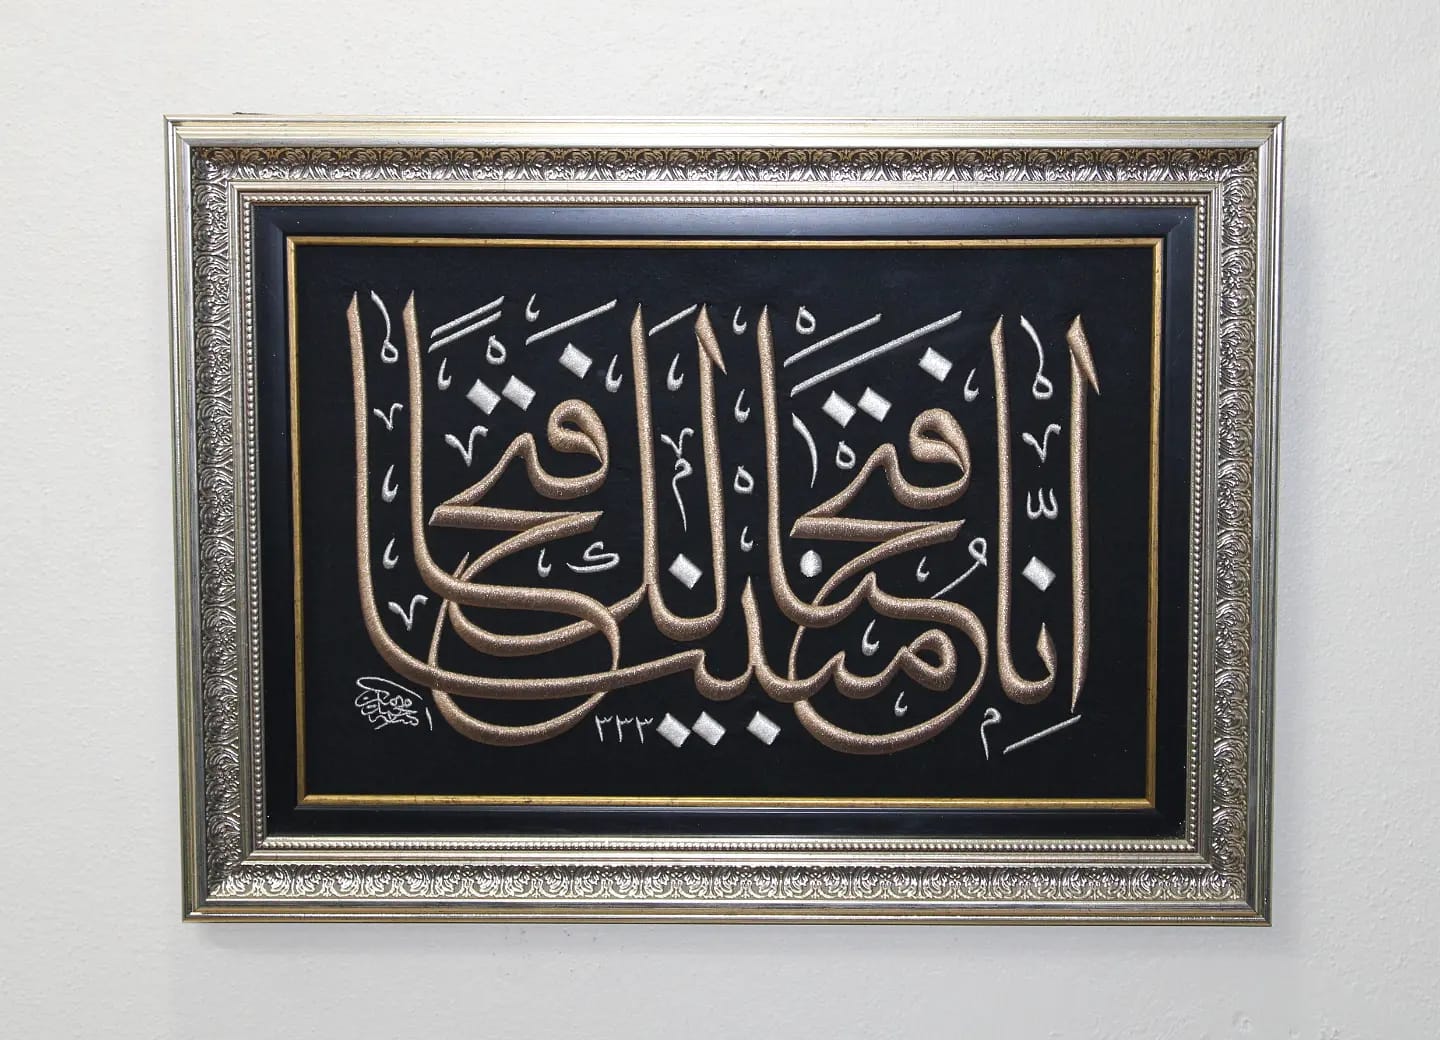 إِنَّا فَتَحْنَا لَكَ فَتْحًا مُبِينًا
١٣٣٣